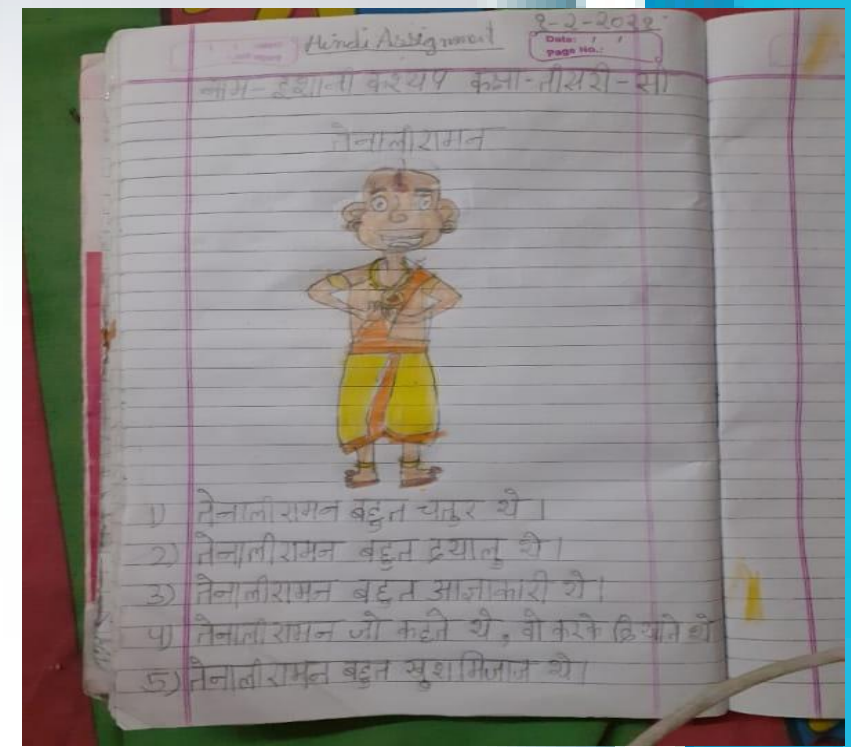 १-२-२०२२
Hindi Assignment
Date: / /
Page No.:
नाम - इशानी कश्यप कक्षा - तीसरी - सी
तेनालीरामन
1) तेनालीरामन बहुत चतुर थे।
2) तेनालीरामन बहुत दयालु थे।
3) तेनालीरामन बहुत आज्ञाकारी थे।
4) तेनालीरामन जो कहते थे, वो करके थे
5) तेनालीरामन बहुत खुशमिजाज थे।